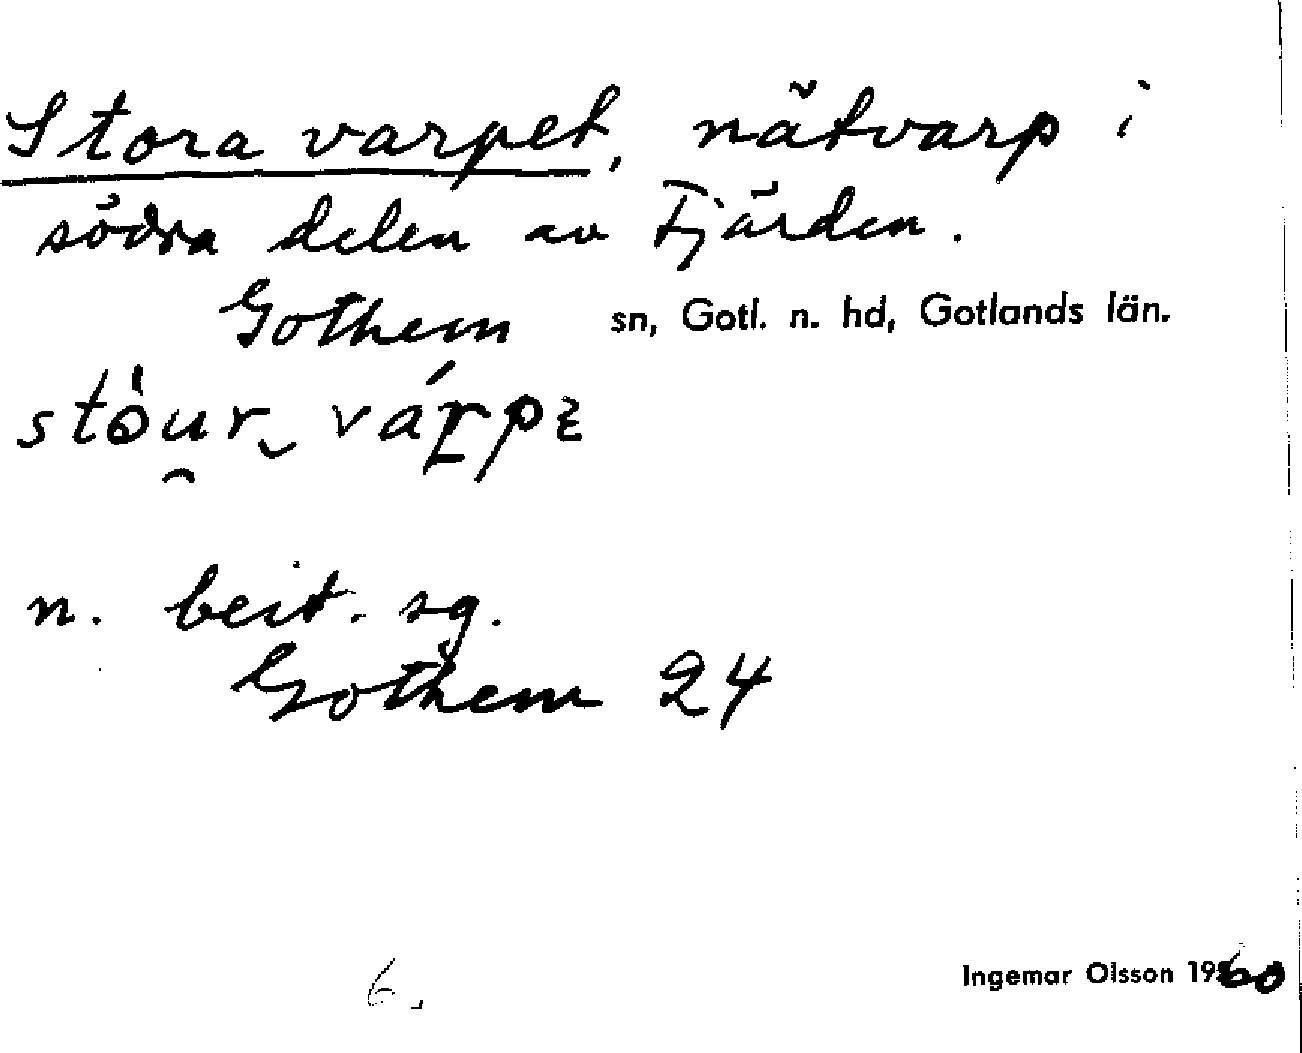 Stora varpet, nätvarp i
södra delen av Fjärden.
Gothem sn, Gotl. n. hd, Gotlands län.
n. beit. sg.
Gothem 24
6.
Ingemar Olsson 1960